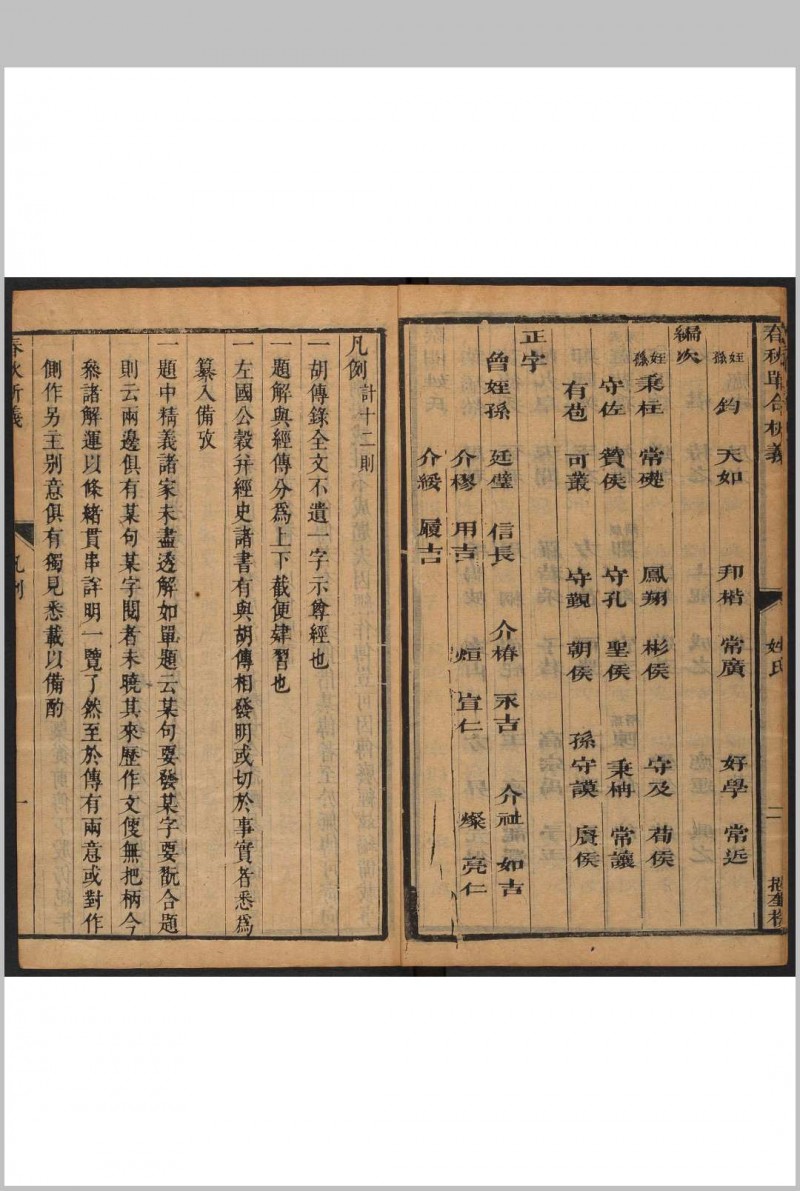 春秋單合析義 姓氏 二
姪孫 鈞 天如 邦楷 常廣 好學 常近
編次
姪孫 秉柱 常礎 鳳翔 彬侯 守及 荀侯
守佐 贊侯 守孔 聖侯 秉柟 常讓
有苞 可叢 守覲 朝侯 孫守謨 賡侯
正字
曾姪孫 廷璧 信長 介椿 永吉 介祉 如吉
介樛 用吉 烜 宣仁 燦 亮仁
介綏 履吉
凡例 計十二則
一胡傳錄全文不遺一字示尊經也
一題解與經傳分爲上下截便肄習也
一左國公穀幷經史諸書有與胡傳相發明或切於事實者悉爲
纂入備攷
一題中精義諸家未盡透解如單題云某句要發某字要翫合題
則云兩邊俱有某句某字閱者未曉其來歷作文便無把柄今
叅諸解運以條緒貫串詳明一覽了然至於傳有兩意或對作
側作另主别意俱有獨見悉載以備酌
春秋析義 凡例 一